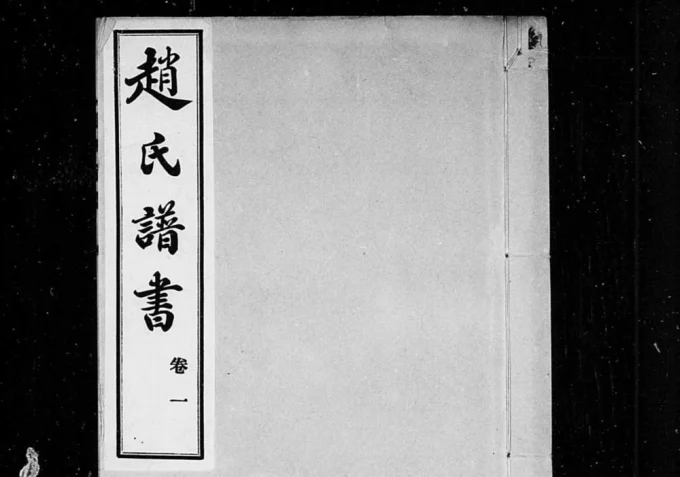 趙氏譜書
卷一